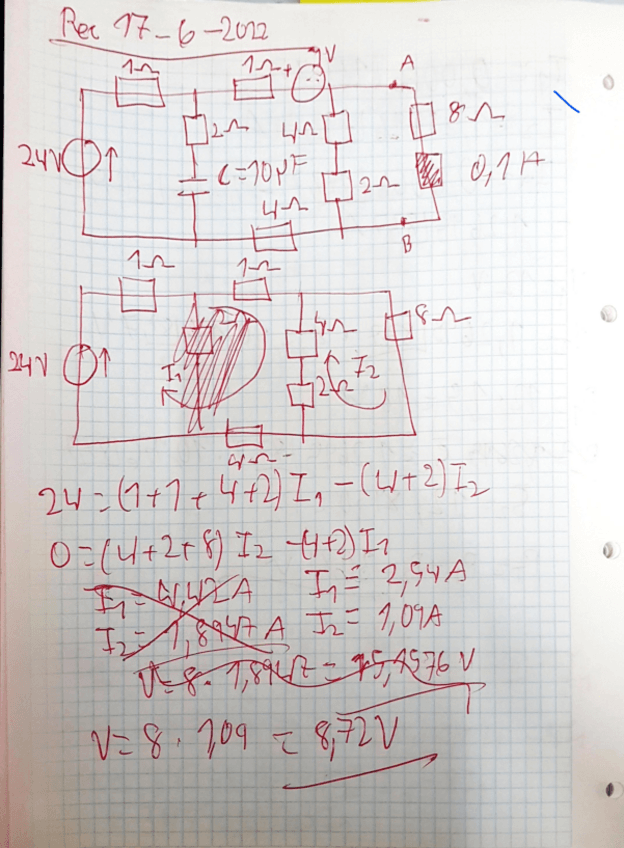 Rec 17-6-2022
1Ω 1Ω + V A
2Ω 4Ω 8Ω
24V C=10µF 2Ω 0,1A
4Ω
B
1Ω 1Ω
4Ω 8Ω
24V I1 2Ω I2
4Ω
24=(1+1+4+2)I1-(4+2)I2
0=(4+2+8)I2-(4+2)I1
I1=4,42A I1= 2,54A
I2=1,8947A I2= 1,09A
V=8.1,8947=15,1576V
V=8.109=8,72V